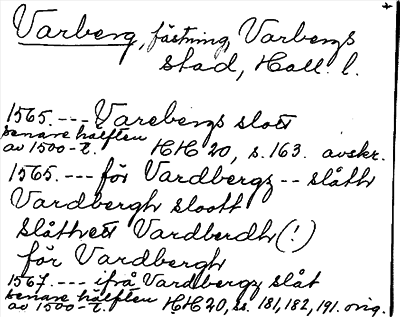 Varberg, fästning, Varbergs
stad, Hall. l.
1565. --- Varebergs slott
senare hälften
av 1500-t. HH 20, s. 163. avskr.
1565. --- för Vardbergz -- slåth
Vardbergh sloott
slåtthett Vardberdh (!)
för Vardbergh
1567. --- ifrå Vardbergz slåt
senare hälften
av 1500-t. HH 20, ss. 181, 182, 191. orig.